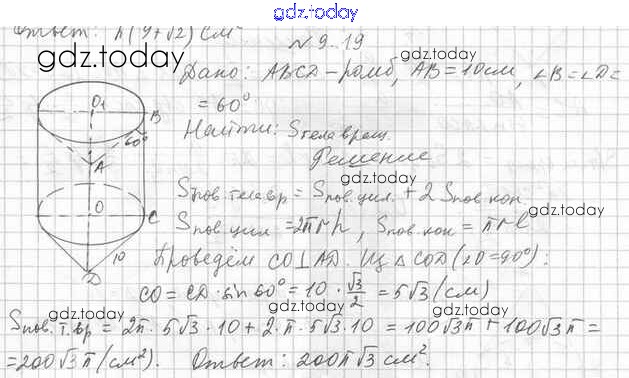 gdz.today
Ответ: π(9+√2) см²
gdz.today
№ 9.19
Дано: ABCD – ромб, AB = 10 см, ∠B = ∠D =
gdz.today
= 60°
Найти: Sтела вращ.
Решение
gdz.today
Sпов. тела вр = Sпов. цил. + 2 Sпов кон
Sпов цил = 2πrh, Sпов кон = πrl
gdz.today
Проведём CO⊥AD. Из △COD (∠O=90°):
CO = CD · sin 60° = 10 · √3/2 = 5√3 (см)
gdz.today
gdz.today
Sпов. т. вр = 2π · 5√3 · 10 + 2 · π · 5√3 · 10 = 100√3π + 100√3π =
= 200√3π (см²). Ответ: 200π√3 см².
gdz.today
O₁
B
60°
A
O
C
10
D